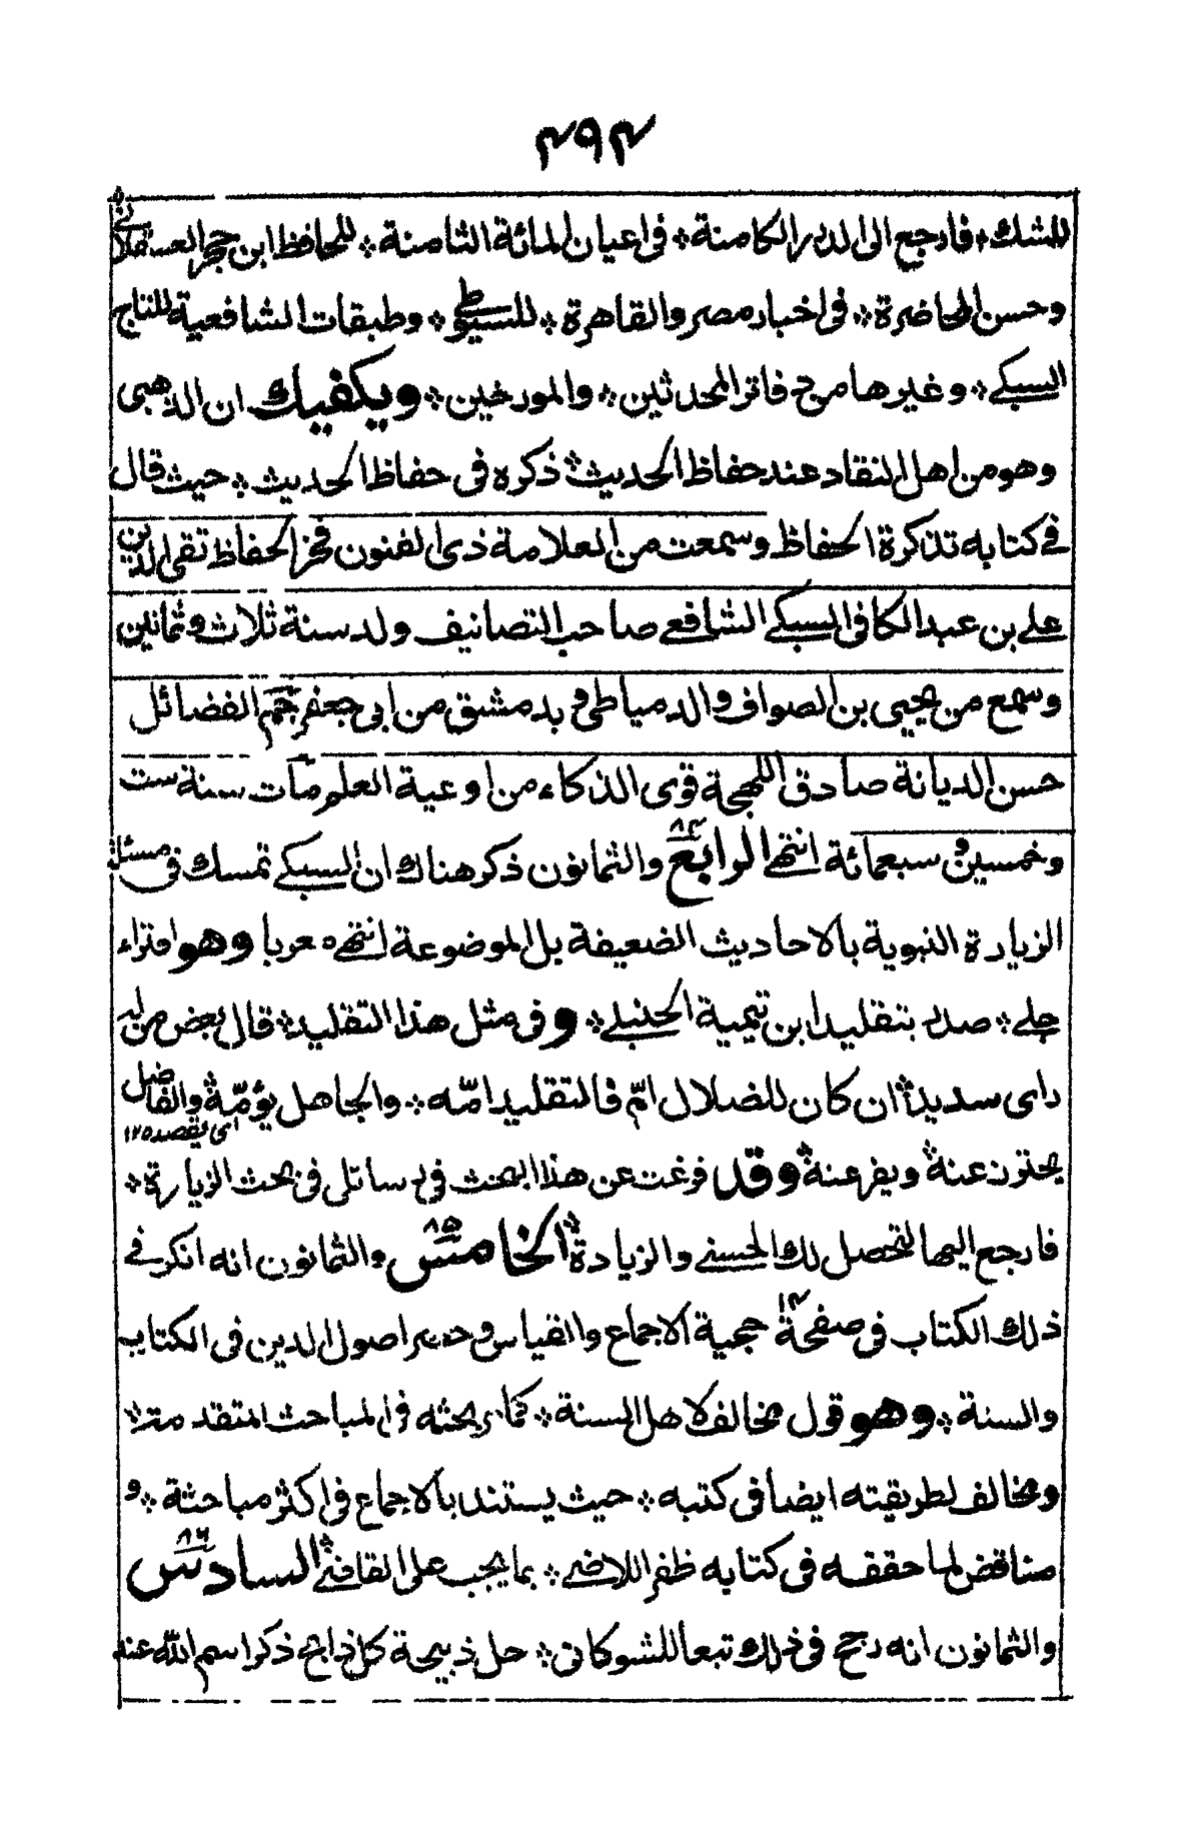 ٤٩٤
للشك ٭ فارجع الى الدرر الكامنة ٭ فى اعيان المائة الثامنة ٭ للحافظ ابن حجر العسقلانى
وحسن المحاضرة ٭ فى اخبار مصر والقاهرة ٭ للسيوطى ٭ وطبقات الشافعية للتاج
السبكے ٭ وغيرها من دفاتر المحدثين ٭ والمورخين ٭ ويكفيك ان الذهبى
وهو من اهل النقاد عند حفاظ الحديث ٭ ذكره فى حفاظ الحديث ٭ حيث قال
فے كتابه تذكرة الحفاظ وسمعت من العلامة ذى الفنون فخر الحفاظ تقى الدين
علے بن عبد الكافى السبكے الشافعے صاحب التصانيف ولد سنة ثلاث وثمانين
وسمع من يحيى بن الصواف والدمياطى وبدمشق من ابى جعفر جم الفضائل
حسن الديانة صادق اللهجة قوى الذكاء من اوعية العلم مات سنة ست
وخمسين وسبعمائة انتهے الرابع ٨٤ والثمانون ذكر هناك ان السبكے تمسك فى مسئلة
الزيارة النبوية بالاحاديث الضعيفة بل الموضوعة انتهے معربا وهو افتراء
جلے ٭ صدر بتقليد ابن تيمية الحنبلے ٭ وفى مثل هذا التقليد ٭ قال بعض من له
راى سديد ٭ ان كان للضلال امّ فالتقليد امّه ٭ والجاهل يؤمّه ٭ والفاضل
اى يقصده ١٢
يحترز عنه ٭ ويفر عنه ٭ وقد فرغت عن هذا البحث فى رسائلى فى بحث الزيارة ٭
فارجع اليها لتحصل لك الحسنے والزيادة ٭ الخامس ٨٥ والثمانون انه انكر فے
ذلك الكتاب فى صفحة ١٤ حجية الاجماع والقياس وحصر اصول الدين فى الكتاب
والسنة ٭ وهو قول مخالف لاهل السنة ٭ كما مر بحثه فى المباحث المتقدمة ٭
ومخالف لطريقته ايضا فى كتبه ٭ حيث يستند بالاجماع فى اكثر مباحثة ٭ و
مناقض لما حققه فى كتابه ظفر اللاضے ٭ بما يجب على القاضے ٭ السادس ٨٦
والثمانون انه رجح فى ذلك تبعا للشوكانى ٭ حل ذبيحة كل ذابح ذكر اسم الله عند